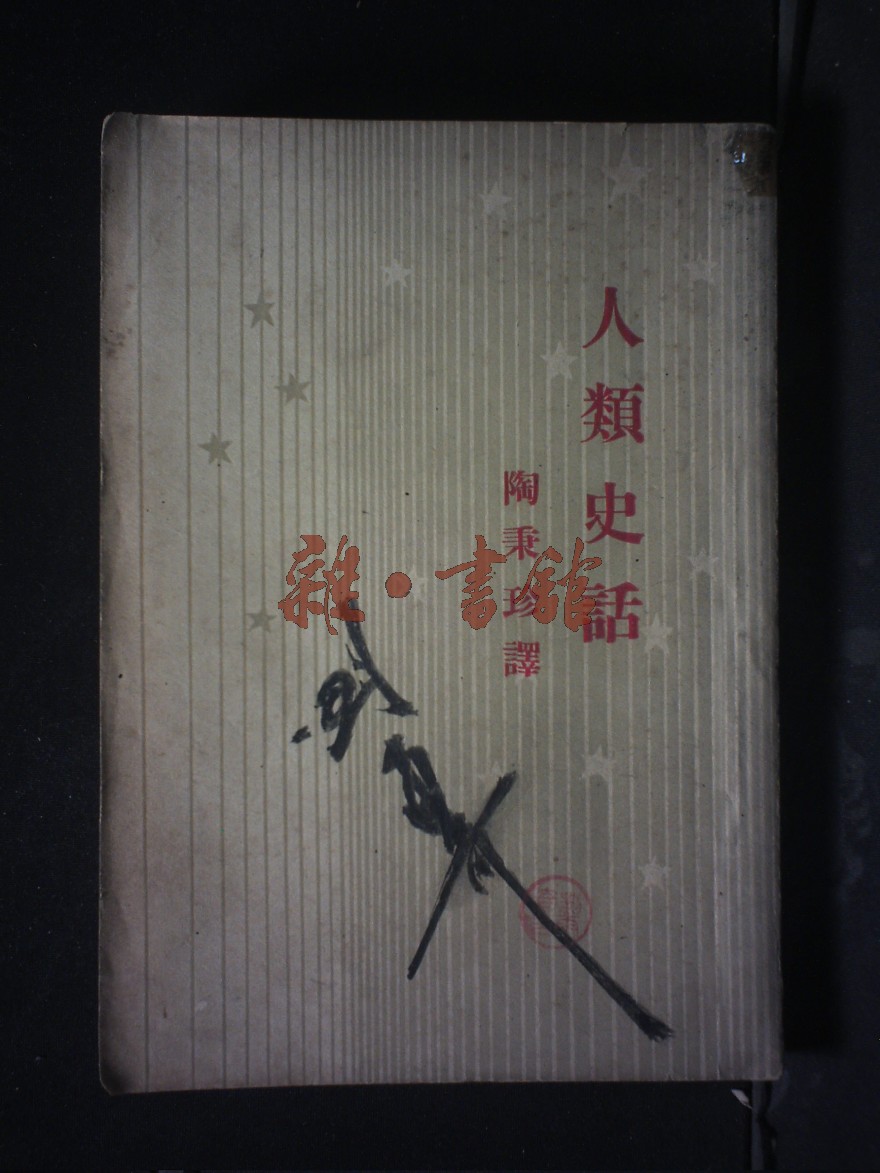 人類史話
陶秉珍譯
雜·書館